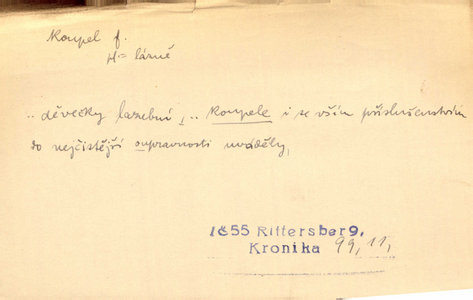 Koupel f.
pl = lázně
.. děvečky lazební, .. koupele i se vším příslušenstvím
do nejčistější oupravnosti uváděly,
1855 Rittersberg,
Kronika 99, 11,